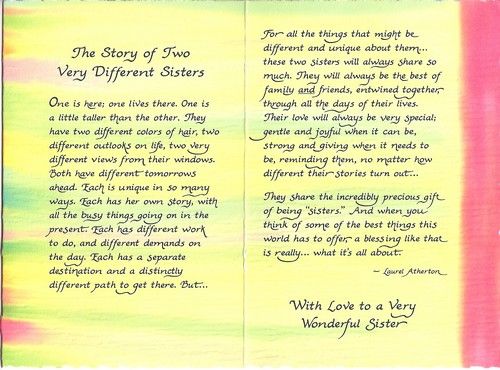 The Story of Two
Very Different Sisters
One is here; one lives there. One is
a little taller than the other. They
have two different colors of hair, two
different outlooks on life, two very
different views from their windows.
Both have different tomorrows
ahead. Each is unique in so many
ways. Each has her own story, with
all the busy things going on in the
present. Each has different work
to do, and different demands on
the day. Each has a separate
destination and a distinctly
different path to get there. But...
For all the things that might be
different and unique about them...
these two sisters will always share so
much. They will always be the best of
family and friends, entwined together,
through all the days of their lives.
Their love will always be very special;
gentle and joyful when it can be,
strong and giving when it needs to
be, reminding them, no matter how
different their stories turn out...
They share the incredibly precious gift
of being "sisters." And when you
think of some of the best things this
world has to offer, a blessing like that
is really... what it's all about.
– Laurel Atherton
With Love to a Very
Wonderful Sister